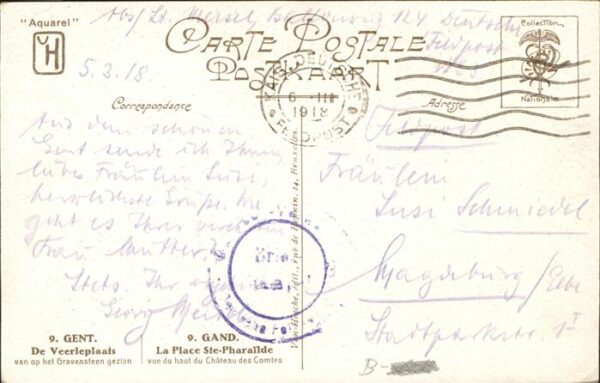 Abs/ Lt. Meisel, Ballonzug 124 Deutsche
Feldpost
"Aquarel"
H
CARTE POSTALE
POSTKAART
Collection
Nationale
5.3.18.
KAIS. DEUTSCHE
6 III
1918
FELDPOST
Correspondance
Adresse
Feldpost
Aus dem schönen
Gent sende ich Ihnen
liebes Fräulein Susi,
herzlichste Grüße. Wie
geht es Ihrer verehrten
Frau Mutter?
Stets Ihr ergebener
Georg Meisel
Fräulein
Susi Schmiedel
Magdeburg/Elbe
Stadtparkstr. 1
Brie
9. GENT.
De Veerleplaats
van op het Gravensteen gezien
9. GAND.
La Place Ste-Pharaïlde
vue du haut du Château des Comtes
B-